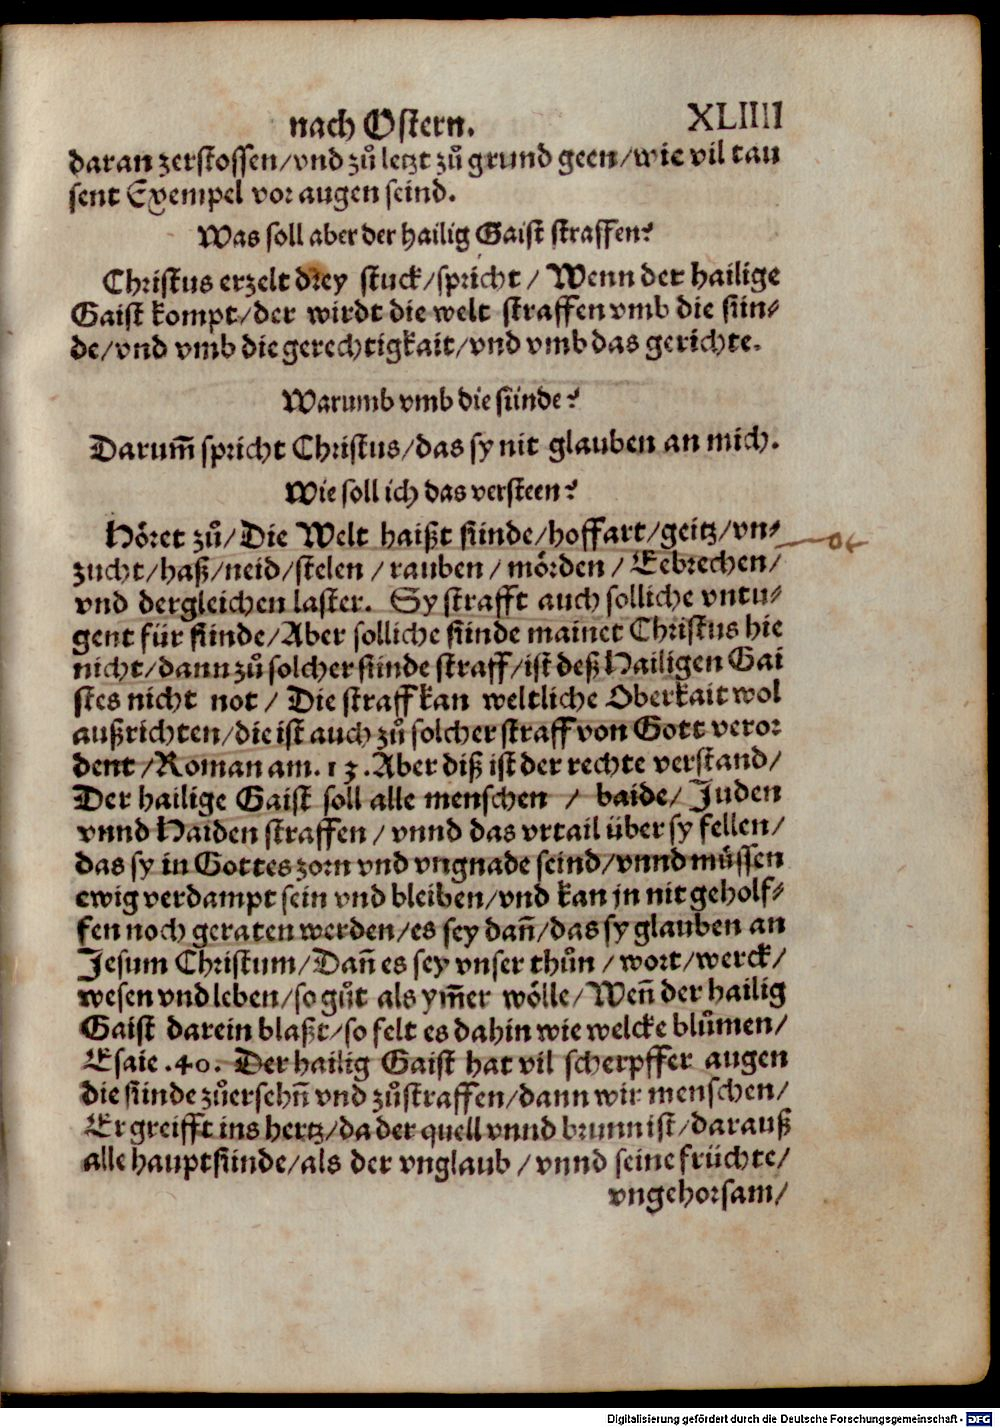 nach Ostern.
XLIIII
daran zerstossen/vnd zů letzt zů grund geen/wie vil tau
sent Exempel vor augen seind.
Was soll aber der hailig Gaist straffen?
Christus erzelt drey stuck/spricht / Wenn der hailige
Gaist kompt/der wirdt die welt straffen vmb die sün⸗
de/vnd vmb die gerechtigkait/vnd vmb das gerichte.
Warumb vmb die sünde?
Darum̃ spricht Christus/das sy nit glauben an mich.
Wie soll ich das versteen?
Höret zů/Die Welt haißt sünde/hoffart/geitz/vn⸗
zucht/haß/neid/stelen / rauben / mörden / Eebrechen/
vnd dergleichen laster. Sy strafft auch solliche vntu⸗
gent für sünde/Aber solliche sünde mainet Christus hie
nicht/dann zů solcher sünde straff/ist deß Hailigen Gai
stes nicht not / Die straff kan weltliche Oberkait wol
außrichten/die ist auch zů solcher straff von Gott veror
dent/Roman am. 13. Aber diß ist der rechte verstand/
Der hailige Gaist soll alle menschen / baide/ Juden
vnnd Haiden straffen / vnnd das vrtail über sy fellen/
das sy in Gottes zorn vnd vngnade seind/vnnd müssen
ewig verdampt sein vnd bleiben/vnd kan jn nit geholf⸗
fen noch geraten werden/es sey dañ/das sy glauben an
Jesum Christum/Dañ es sey vnser thůn / wort/werck/
wesen vnd leben/so gůt als ym̃er wölle/Weñ der hailig
Gaist darein blaßt/so felt es dahin wie welcke blůmen/
Esaie .40. Der hailig Gaist hat vil scherpffer augen
die sünde zůersehñ vnd zůstraffen/dann wir menschen/
Er greifft ins hertz/da der quell vnnd brunn ist/darauß
alle hauptsünde/als der vnglaub / vnnd seine früchte/
vngehorsam/
Digitalisierung gefördert durch die Deutsche Forschungsgemeinschaft - DFG